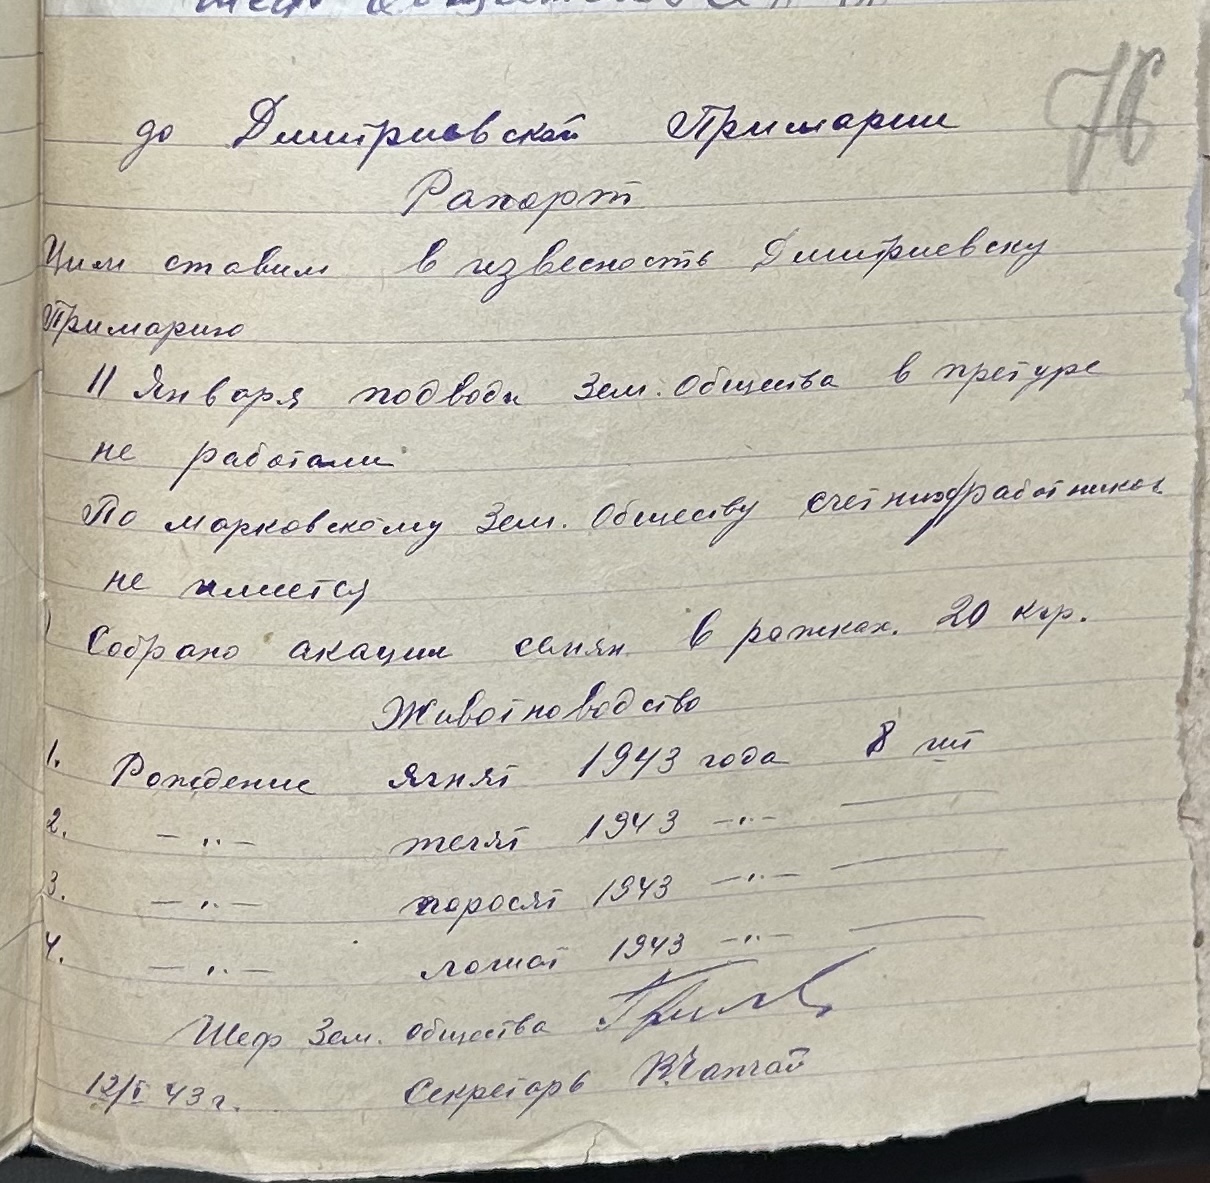 76
до Дмитриевской Примарии
Рапорт
Цим ставим в извесность Дмитриевску
Примарию
11 Января подводы Зем. Общества в претуре
не работали
По Марковскому Зем. Обществу счетных работников
не имеется
Собрано акации семян в рожках. 20 кгр.
Животноводство
1. Рождение ягнят 1943 года 8 шт
2. —„— телят 1943 —„— —
3. —„— поросят 1943 —„— —
4. —„— лошат 1943 —„— —
Шеф Зем. общества
12/I 43 г. Секретарь